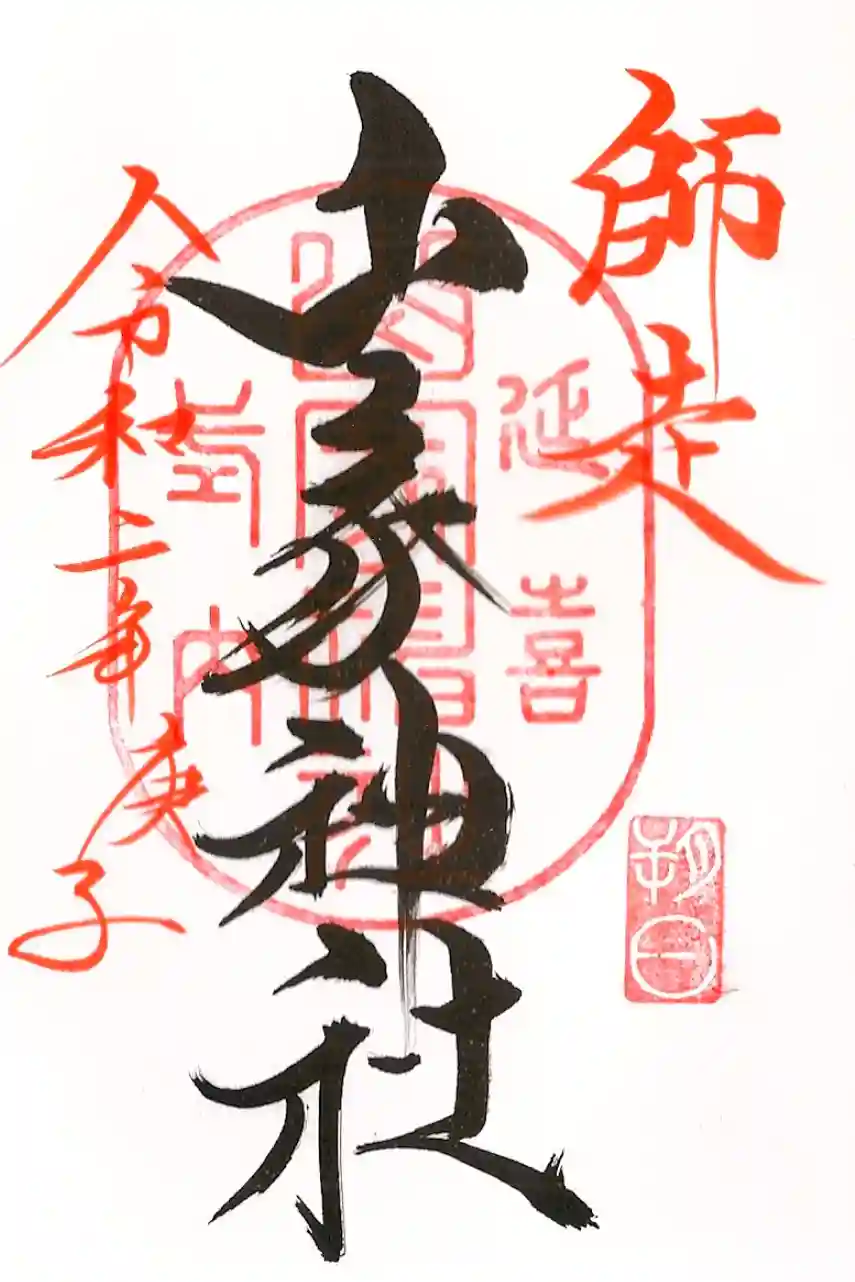 師走
延喜
朔日
山家神社
式内
令和二年 庚子